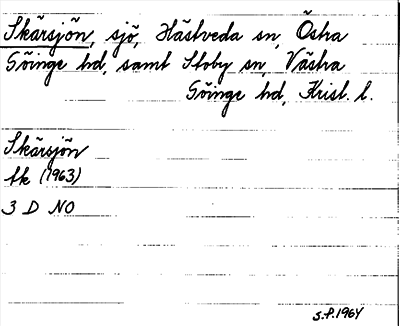 Skärsjön, sjö, Hästveda sn, Östra
Göinge hd, samt Stoby sn, Västra
Göinge hd, Krist. l.
Skärsjön
tk (1963)
3 D NO
S.P. 1964